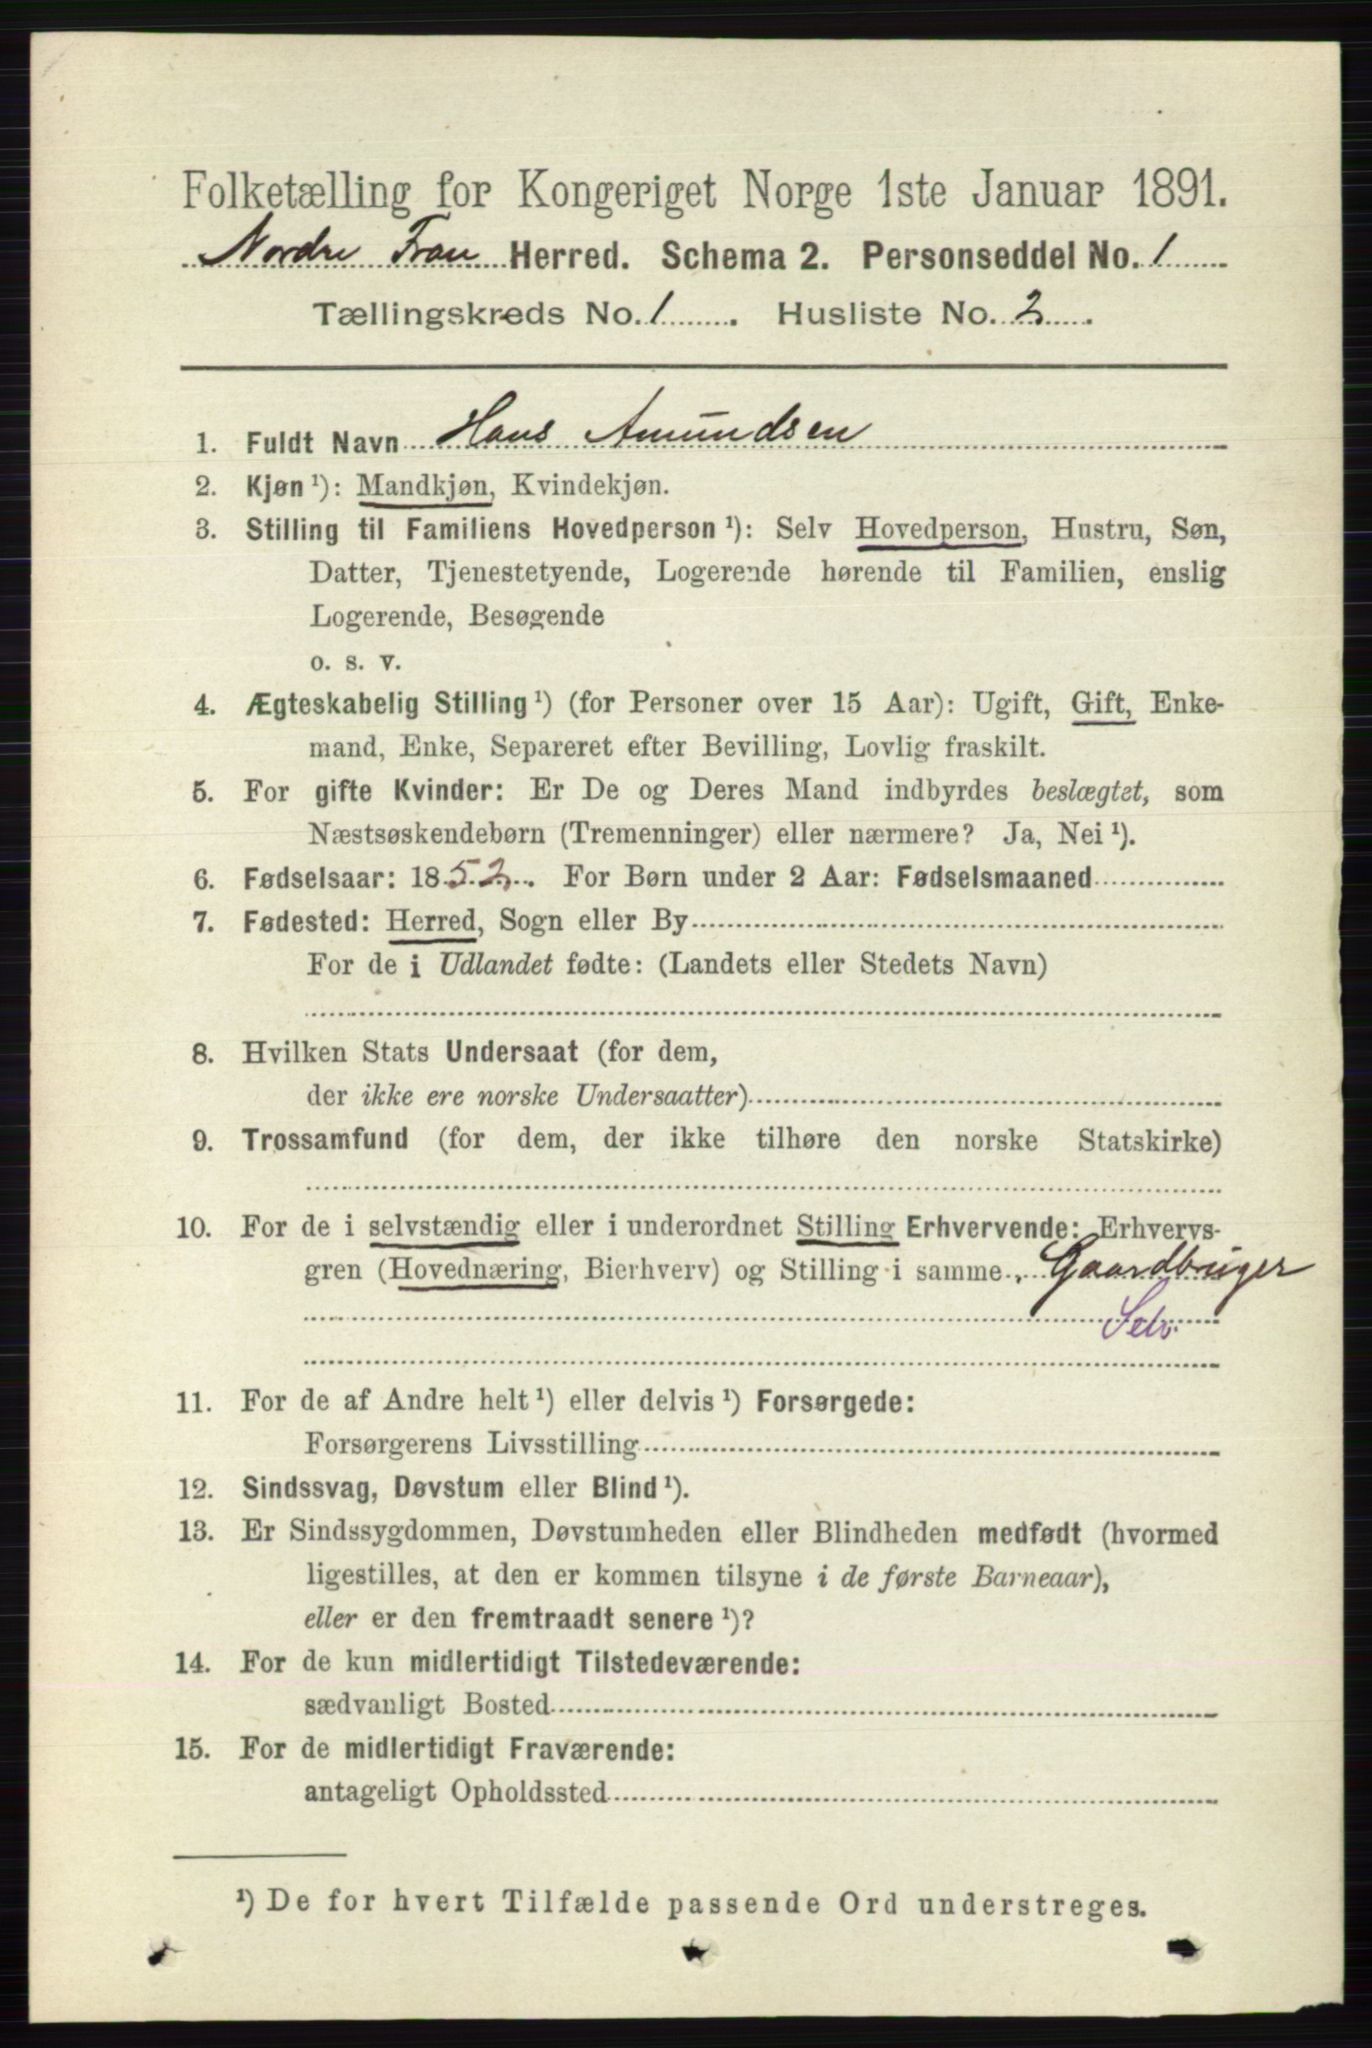 Folketælling for Kongeriget Norge 1ste Januar 1891.
Nordre Fron Herred. Schema 2. Personseddel No. 1
Tællingskreds No. 1. Husliste No. 2.
1. Fuldt Navn Hans Amundsen
2. Kjøn ¹): Mandkjøn, Kvindekjøn.
3. Stilling til Familiens Hovedperson ¹): Selv Hovedperson, Hustru, Søn,
Datter, Tjenestetyende, Logerende hørende til Familien, enslig
Logerende, Besøgende
o. s. v.
4. Ægteskabelig Stilling ¹) (for Personer over 15 Aar): Ugift, Gift, Enke-
mand, Enke, Separeret efter Bevilling, Lovlig fraskilt.
5. For gifte Kvinder: Er De og Deres Mand indbyrdes beslægtet, som
Næstsøskendebørn (Tremenninger) eller nærmere? Ja, Nei ¹).
6. Fødselsaar: 1852. For Børn under 2 Aar: Fødselsmaaned
7. Fødested: Herred, Sogn eller By
For de i Udlandet fødte: (Landets eller Stedets Navn)
8. Hvilken Stats Undersaat (for dem,
der ikke ere norske Undersaatter)
9. Trossamfund (for dem, der ikke tilhøre den norske Statskirke)
10. For de i selvstændig eller i underordnet Stilling Erhvervende: Erhvervs-
gren (Hovednæring, Bierhverv) og Stilling i samme. Gaardbruger
Selv.
11. For de af Andre helt ¹) eller delvis ¹) Forsørgede:
Forsørgerens Livsstilling
12. Sindssvag, Døvstum eller Blind ¹).
13. Er Sindssygdommen, Døvstumheden eller Blindheden medfødt (hvormed
ligestilles, at den er kommen tilsyne i de første Barneaar),
eller er den fremtraadt senere ¹)?
14. For de kun midlertidigt Tilstedeværende:
sædvanligt Bosted
15. For de midlertidigt Fraværende:
antageligt Opholdssted
¹) De for hvert Tilfælde passende Ord understreges.